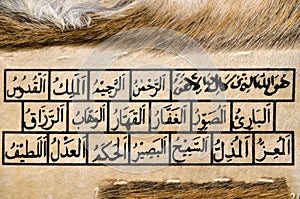 هُوَ اللهُ الَّذِي لَا إِلٰهَ إِلَّا هُوَ اَلرَّحْمٰنُ اَلرَّحِيْمُ اَلْمَلِكُ اَلْقُدُّوْسُ
اَلْبَارِئُ اَلْمُصَوِّرُ اَلْغَفَّارُ اَلْقَهَّارُ اَلْوَهَّابُ اَلرَّزَّاقُ
اَلْمُعِزُّ اَلْمُذِلُّ اَلسَّمِيْعُ اَلْبَصِيْرُ اَلْحَكَمُ اَلْعَدْلُ اَللَّطِيْفُ